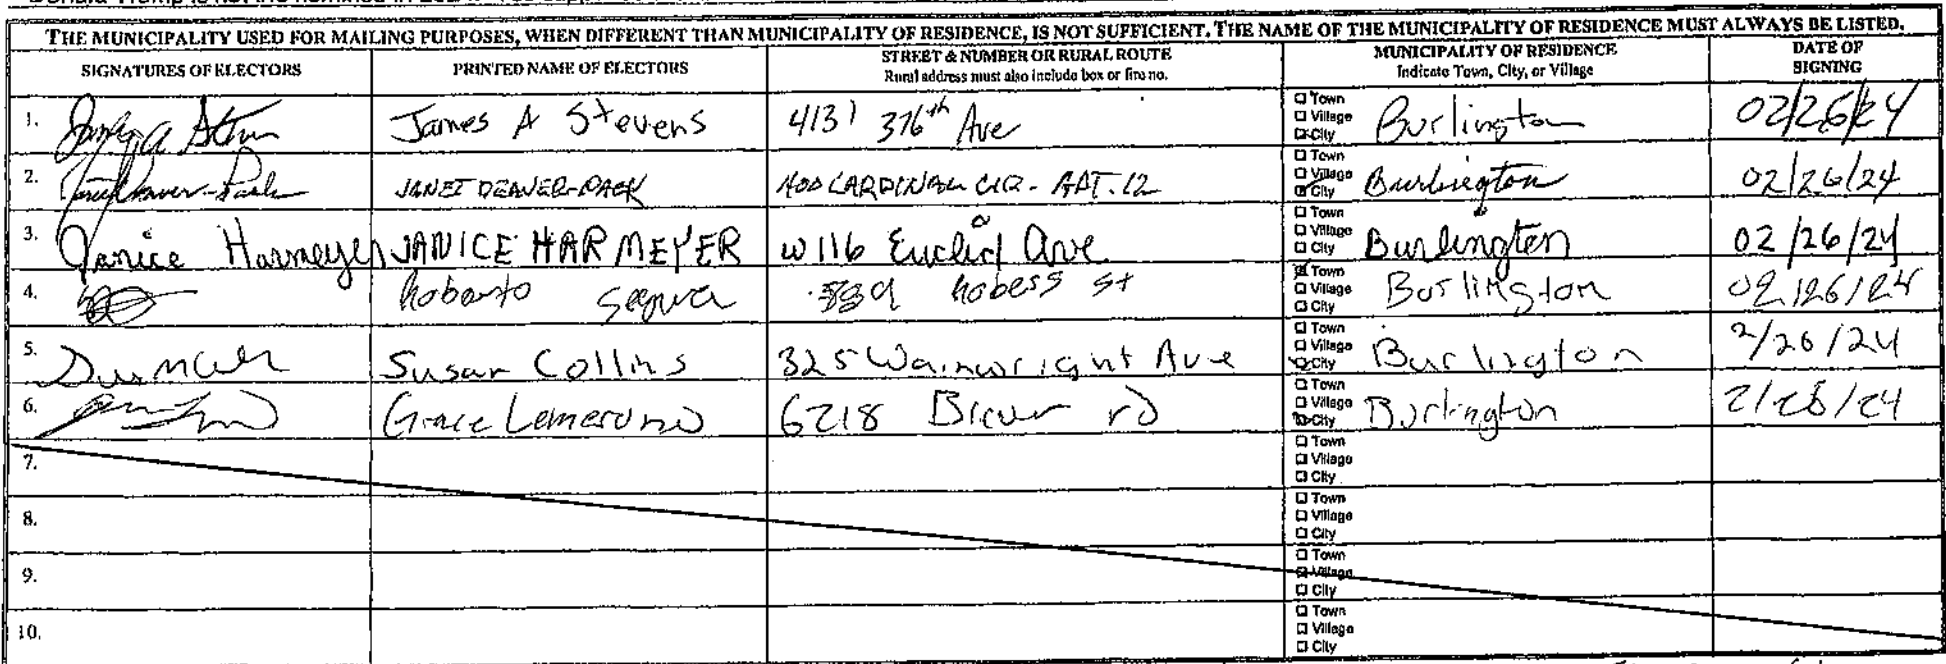 THE MUNICIPALITY USED FOR MAILING PURPOSES, WHEN DIFFERENT THAN MUNICIPALITY OF RESIDENCE, IS NOT SUFFICIENT. THE NAME OF THE MUNICIPALITY OF RESIDENCE MUST ALWAYS BE LISTED.
SIGNATURES OF ELECTORS PRINTED NAME OF ELECTORS STREET & NUMBER OR RURAL ROUTE Rural address must also include box or fire no. MUNICIPALITY OF RESIDENCE Indicate Town, City, or Village DATE OF SIGNING
1. James A Stevens 4131 376th Ave Town Village City Burlington 02/26/24
2. JANET DEAVER-PACK 400 CARDINAL CIR - APT. 12 Town Village City Burlington 02/26/24
3. Janice Harmeyer JANICE HARMEYER W116 Euclid Ave. Town Village City Burlington 02/26/24
4. Roberto Town Village City Burlington 02/26/24
5. Susan Collins 325 Wainwright Ave Town Village City Burlington 2/26/24
6. Grace 6218 rd Town Village City Burlington
7. Town Village City
8. Town Village City
9. Town Village City
10. Town Village City